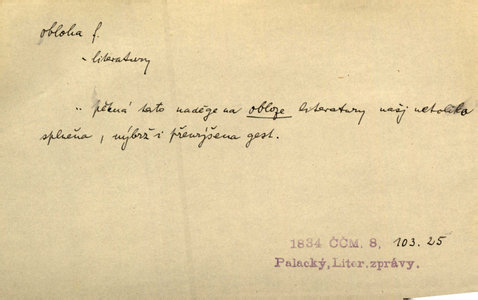 obloha f.
- literatury
„ pěkná tato naděge na obloze literatury našj netoliko
splněna, nýbrž i převýšena gest.
1834 ČČM. 8, 103.25
Palacký, Liter. zprávy.